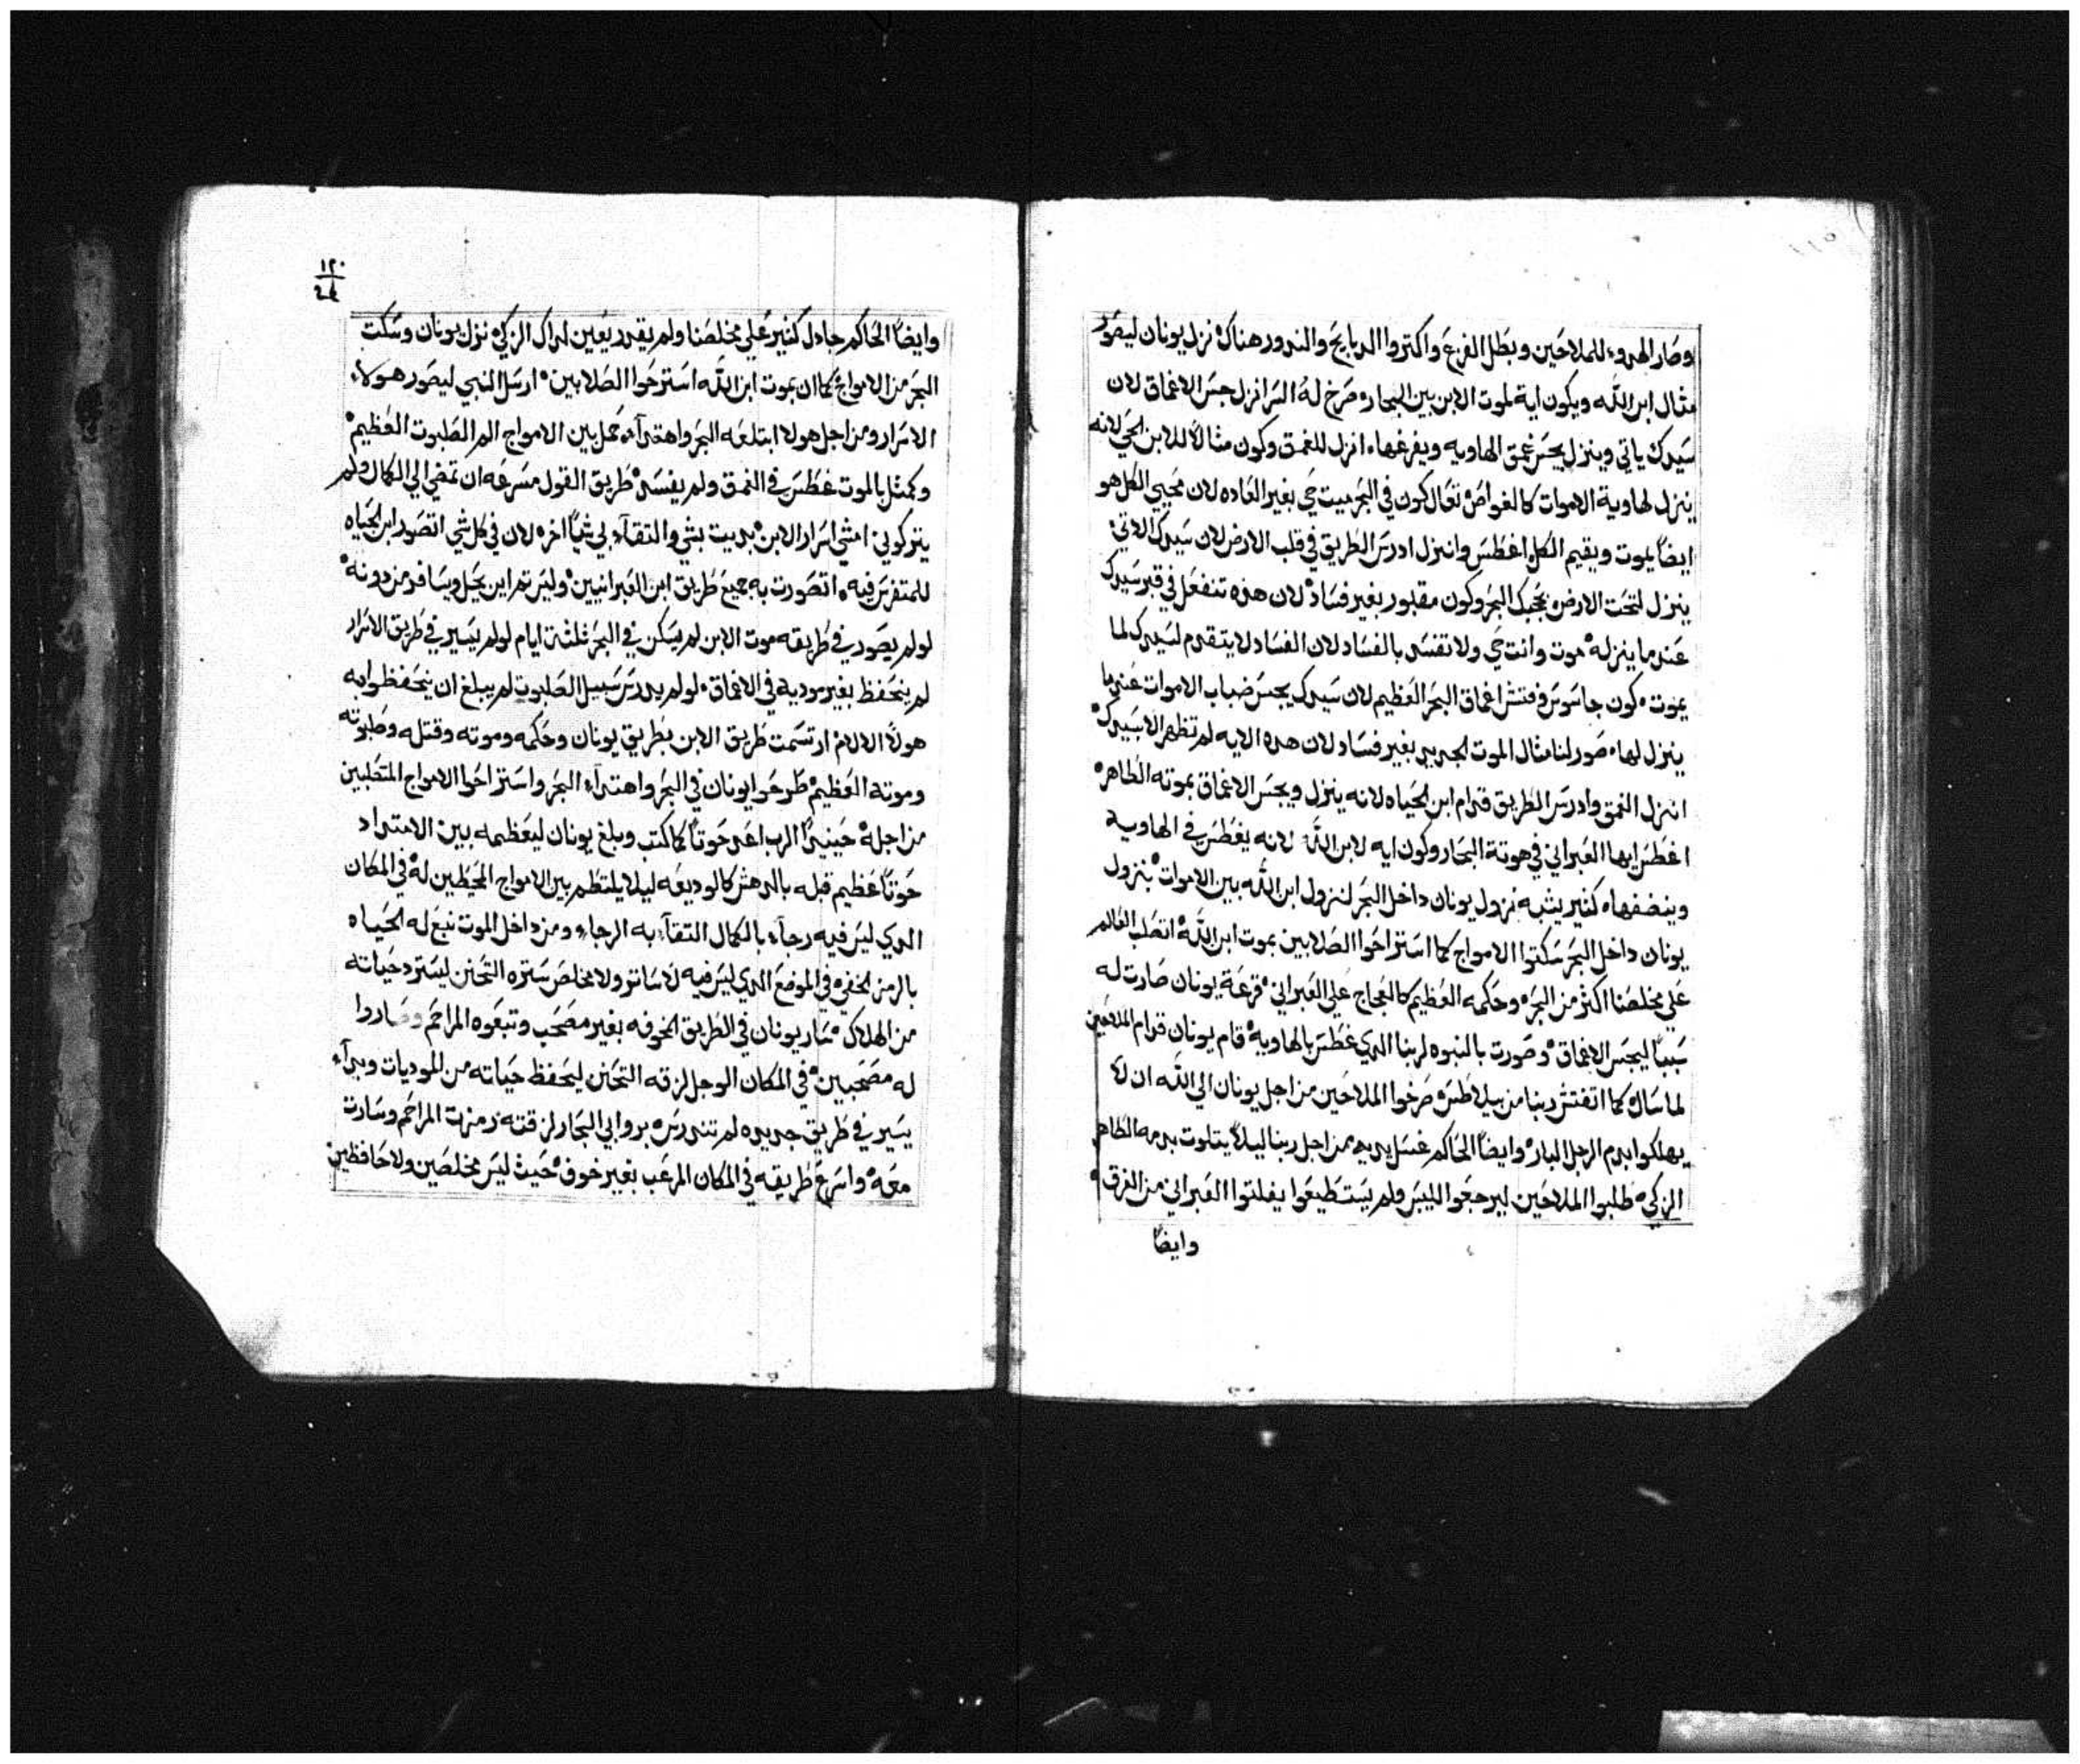 وصار الهدوء للملاحين وبطل الفزع واكتروا الدبايح والندور هناك نزل يونان ليصور
مثال ابن الله ويكون اية لموت الابن بين البحاره صرخ له السر انزل جس الاعماق لان
سيدك ياتي وينزل يجس عمق الهاويه ويفرغهاه انزل للعمق وكون مثالاً للابن الحي لانه
ينزل لهاوية الاموات كالغواص تعال كون في البحر ميت حي بغير العاده لان محيي الكل هو
ايضاً يموت ويقيم الكل اغطس وانزل ادرس الطريق في قلب الارض لان سيدك الاتي
ينزل لتحت الارض يحجبك البحر وكون مقبور بغير فساد لان هذه تنفعل في قبر سيدك
عندما ينزله موت وانت حي ولا تفسى بالفساد لان الفساد لا يتقدم لسيدك لما
يموت كون جاسوس وفتش اعماق البحر العظيم لان سيدك يجس ضباب الاموات عندما
ينزل لها صور لنا مثال الموت الجديد بغير فساد لان هده الايه لم تظهر الا بسيدك
انزل العمق وادرس الطريق قدام ابن الحياه لانه ينزل ويجس الاعماق بموته الطاهر
اغطس ايها العبراني في هوتة البحار وكون ايه لابن الله لانه يغطس في الهاويه
وينضفهاه كثير يشبه نزول يونان داخل البحر لنزول ابن الله بين الاموات بنزول
يونان داخل البحر سكتوا الامواج كما استراحوا الصلابين بموت ابن الله اتصلب العالم
علي مخلصنا اكثر من البحر وحكمه العظيم كالعجاج علي العبراني قرعة يونان صارت له
سبباً ليجس الاعماق وصورت بالنبوه لربنا الدي غطس بالهاوية قام يونان قدام الملاحين
لما ساله كما اتفتش ربنا من بيلاطس صرخوا الملاحين من اجل يونان الي الله ان لا
يهلكوا بدم الرجل البار وايضاً الحاكم غسل يديه من اجل ربنا ليلاً يتلوت بدمه الطاهر
الزكي طلبوا الملاحين ليرجعوا لليبس ولم يستطيعوا يفلتوا العبراني من الغرق
وايضاً
١٢٠
وايضاً الحاكم جادل كثير علي مخلصنا ولم يقدر يعين لداك الزكي نزل يونان وسكت
البحر من الامواج كما ان بموت ابن الله استرحوا الصلابين ارسل النبي ليصور هولاء
الاسرار ومن اجل هولا ابتلعه البحر واهتدآ حمل بين الامواج الم الصلبوت العظيم
وكمثل بالموت غطس في العمق ولم يفسى طريق القول مسرعه ان تمضي الي الكمال ولم
يتركوني امشي اسرار الابن بديت بشي والتقآ بي شياً اخره لان في كل شي اتصور ابن الحياه
للمتفرس فيه اتصورت به جميع طريق ابن العبرانيين وليس تم اين يحل ويسافر من دونه
لو لم يصور في طريقه موت الابن لم يسكن في البحر ثلثة ايام لو لم يسير في طريق الاسرار
لم ينحفظ بغير موديه في الاعماق لو لم يدرس سبيل الصلبوت لم يبلغ ان يتحفظوا به
هولاً الالام ارتسمت طريق الابن بطريق يونان وحكمه وموته وقتله وصلبوته
وموته العظيم طرحوا يونان في البحر واهتدآ البحر واستراحوا الامواج المتصلبين
من اجله حينيداً الرب اعد حوتاً كما كتب وبلغ يونان ليعظمه بين الامتداد
حوتاً عظيم قبله بالدهش كالوديعه ليلا يلتطم بين الامواج المحيطين له في المكان
الدي ليس فيه رجآء بالكمال التقآ به الرجاء ومن داخل الموت نبع له الحياه
بالرمز الخفي في الموضع الدي ليس فيه لا ساتر ولا مخلص ستره التحنن ليسترد حياته
من الهلاك سار يونان في الطريق المخوفه بغير مصحب وتبعوه المراحم وصاروا
له مصحبين في المكان الوجل لزقه التحنن ليحفظ حياته من الموديات وبدآء
يسير في طريق جديده لم تندرس بروابي البحار لزقته رمزت المراحم وسارت
معه واسرع طريقه في المكان المرعب بغير خوف حيث ليس مخلصين ولا حافظين